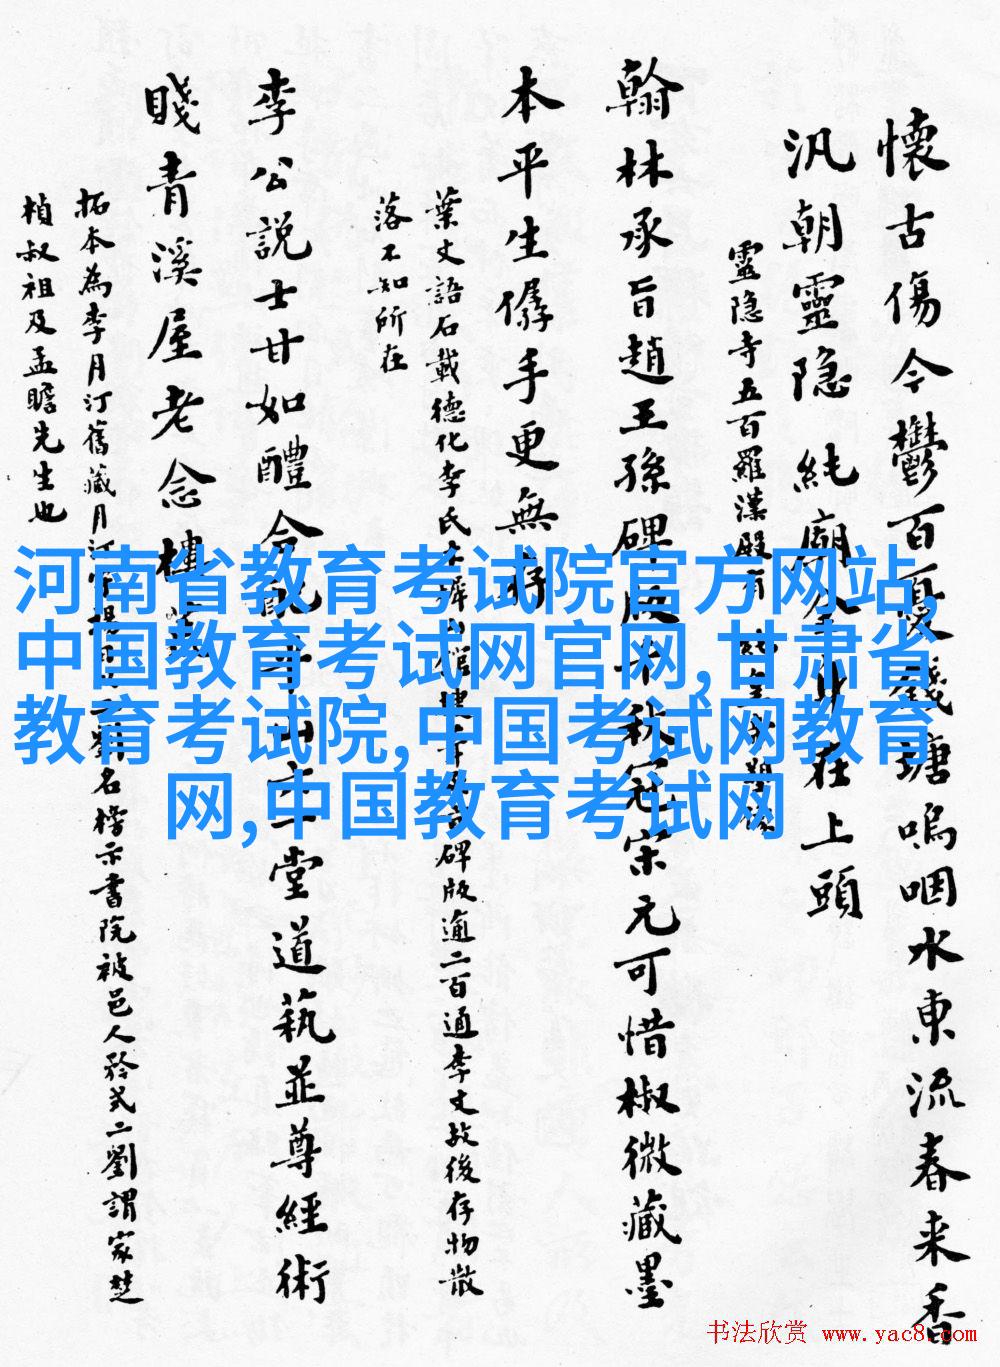 懷古傷今鬱百憂錢塘嗚咽水東流春来香
汎朝靈隐純廟金身在上頭
靈隐寺五百羅漢殿有
翰林承旨趙王孫碑版千秋冠宋元可惜椒微藏墨
本平生儔手更無
葉文語石載德化李氏木犀山館 碑版逾二百通李文故後存物散
落不知所在
李公説士甘如醴合 堂道藝並尊經術
賤青溪屋老念樓
拓本為李月汀舊藏月汀 二劉名榜示書院被邑人矜式二劉謂家楚
楨叔祖及孟瞻先生也
河南省教育考试院官方网站,
中国教育考试网官网,甘肃省
教育考试院,中国考试网教育
网,中国教育考试网
书法欣赏 www.yac8.com